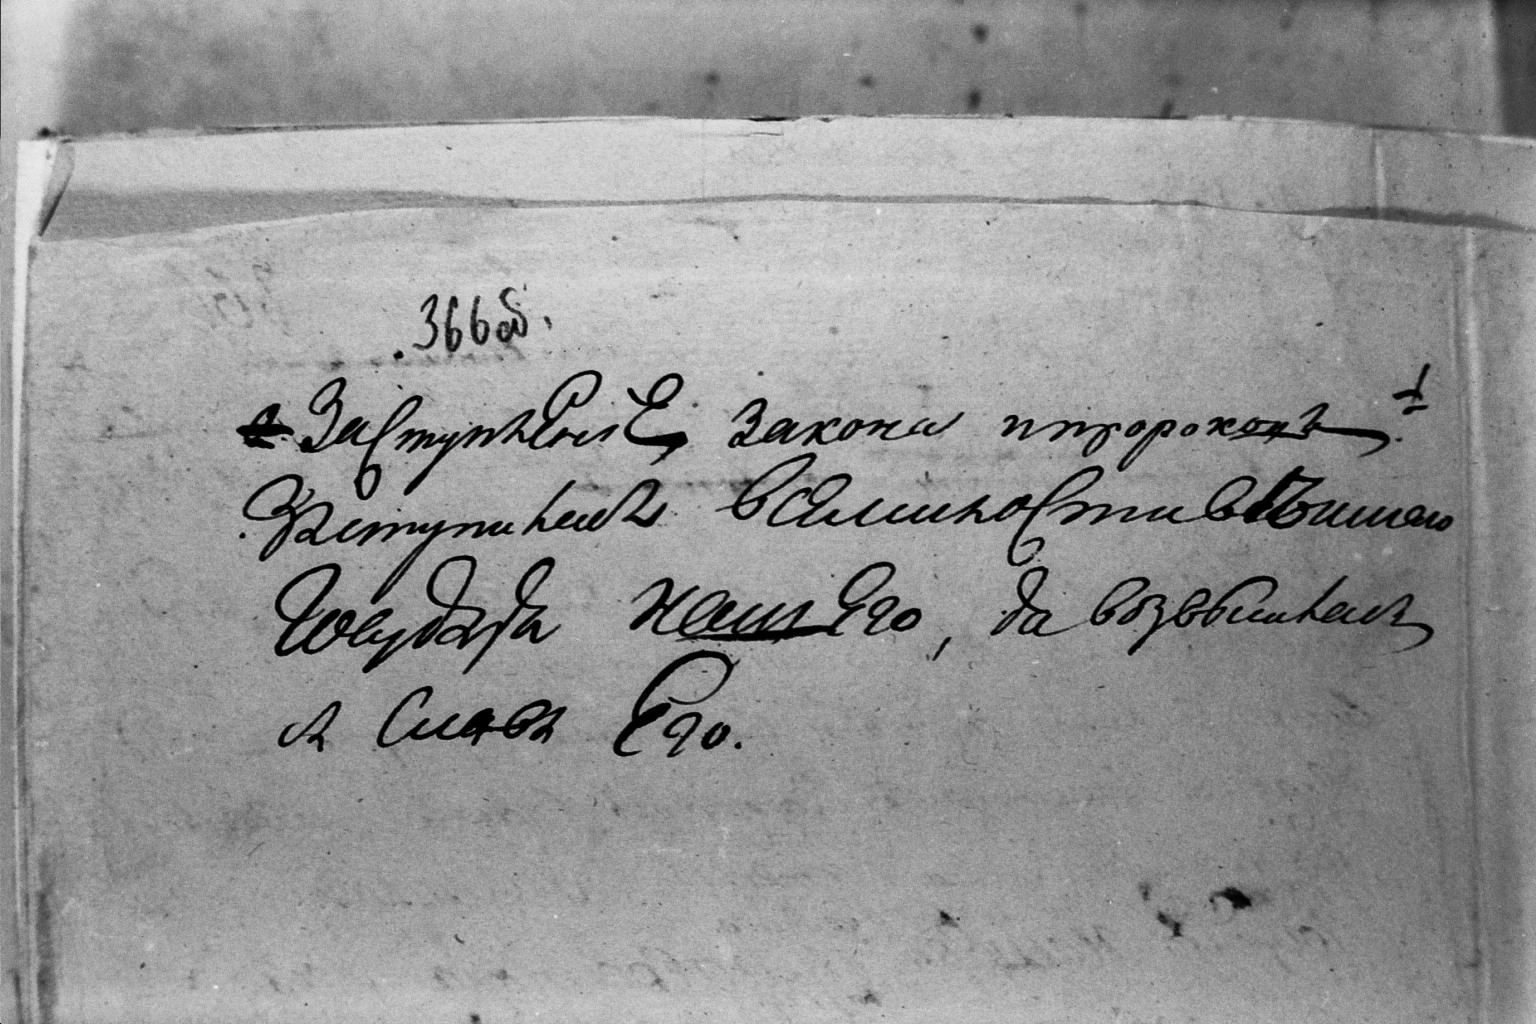 366 об.
Заступленіе закона пророкомъ
Заступникъ всемилостивѣйшаго
Государя нашего, да возвышенъ
въ славѣ Его.